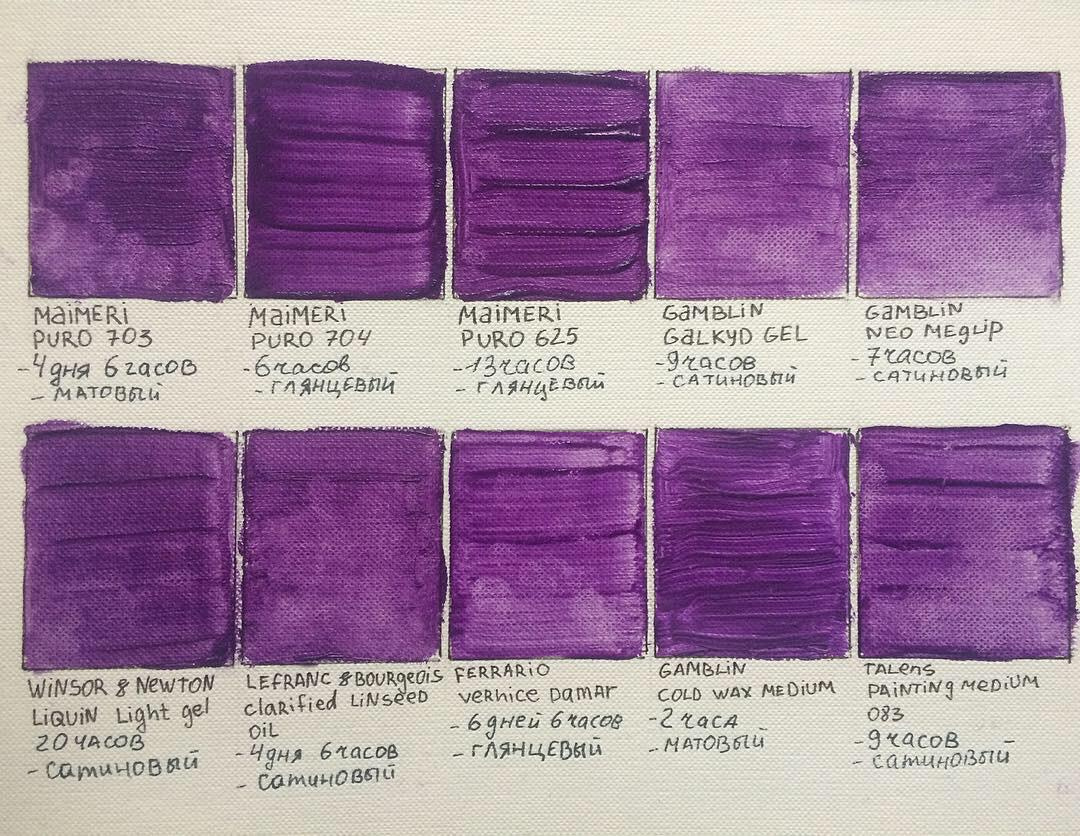 MaiMERi
PURO 703
-4 дня 6 часов
- МАТОВЫЙ
MaiMERi
PURO 704
-6 часов
- ГЛЯНЦЕВЫЙ
MaiMERi
PURO 625
-13 часов
- ГЛЯНЦЕВЫЙ
GaMBLiN
GaLKYD GEL
-9 часов
- САТИНОВЫЙ
GaMBLiN
NEO MEgLip
-7 часов
- САТИНОВЫЙ
WiNSOR & NEWTON
LiQUiN Light gel
20 ЧАСОВ
- Сатиновый
LEFRANC & BOURgeois
claRified LiNSEED
OiL
-4 дня 6 часов
- Сатиновый
FERRARiO
VERNicE DAMAR
- 6 дней 6 часов
- ГЛЯНЦЕВЫЙ
GAMBLiN
COLD WAX MEDiUM
-2 часа
- МАТОВЫЙ
TALens
PAiNTiNg MEDiUM
083
-9 часов
- Сатиновый